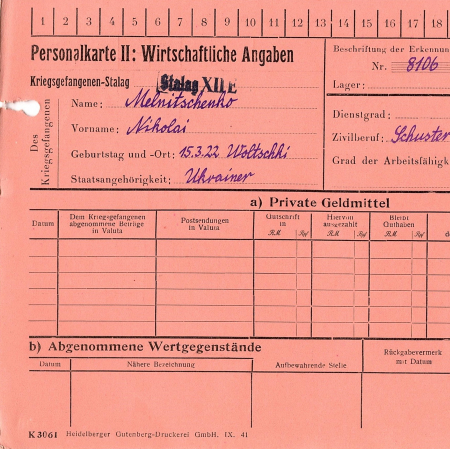 1 2 3 4 5 6 7 8 9 10 11 12 13 14 15 16 17 18
Personalkarte II: Wirtschaftliche Angaben
Kriegsgefangenen-Stalag Stalag XII E
Des Kriegsgefangenen
Name: Melnitschenko
Vorname: Nikolai
Geburtstag und -Ort: 15.3.22 Woltschki
Staatsangehörigkeit: Ukrainer
Beschriftung der Erkennun
Nr. 8106
Lager:
Dienstgrad:
Zivilberuf: Schuster
Grad der Arbeitsfähigk
a) Private Geldmittel
Datum
Dem Kriegsgefangenen
abgenommene Beträge
in Valuta
Postsendungen
in Valuta
Gutschrift
in
RM Rpf
Hiervon
ausgezahlt
RM Rpf
Bleibt
Guthaben
RM Rpf
b) Abgenommene Wertgegenstände
Datum
Nähere Bezeichnung
Aufbewahrende Stelle
Rückgabevermerk
mit Datum
K 3061 Heidelberger Gutenberg-Druckerei GmbH. IX. 41